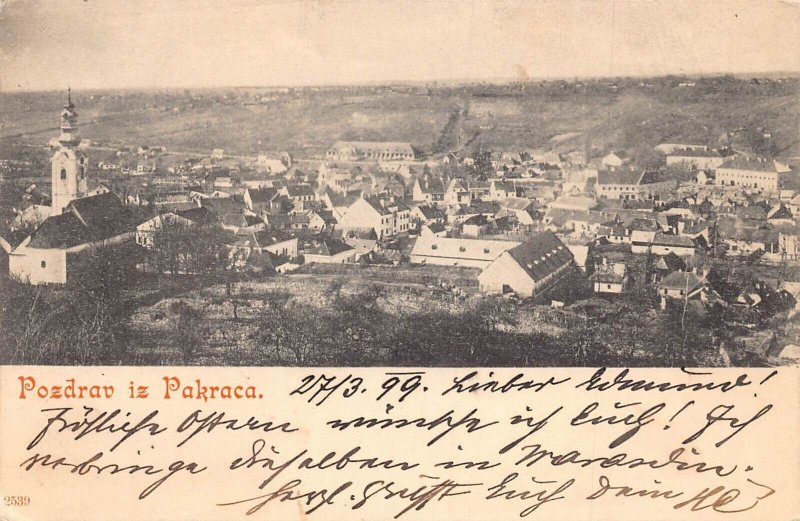 Pozdrav iz Pakraca. 27/3. 99. Lieber Edmund!
Fröhliche Ostern wünsche ich Euch! Ich
verbringe dieselben in Warasdin.
2539 Herzl. Grüsst Euch Dein